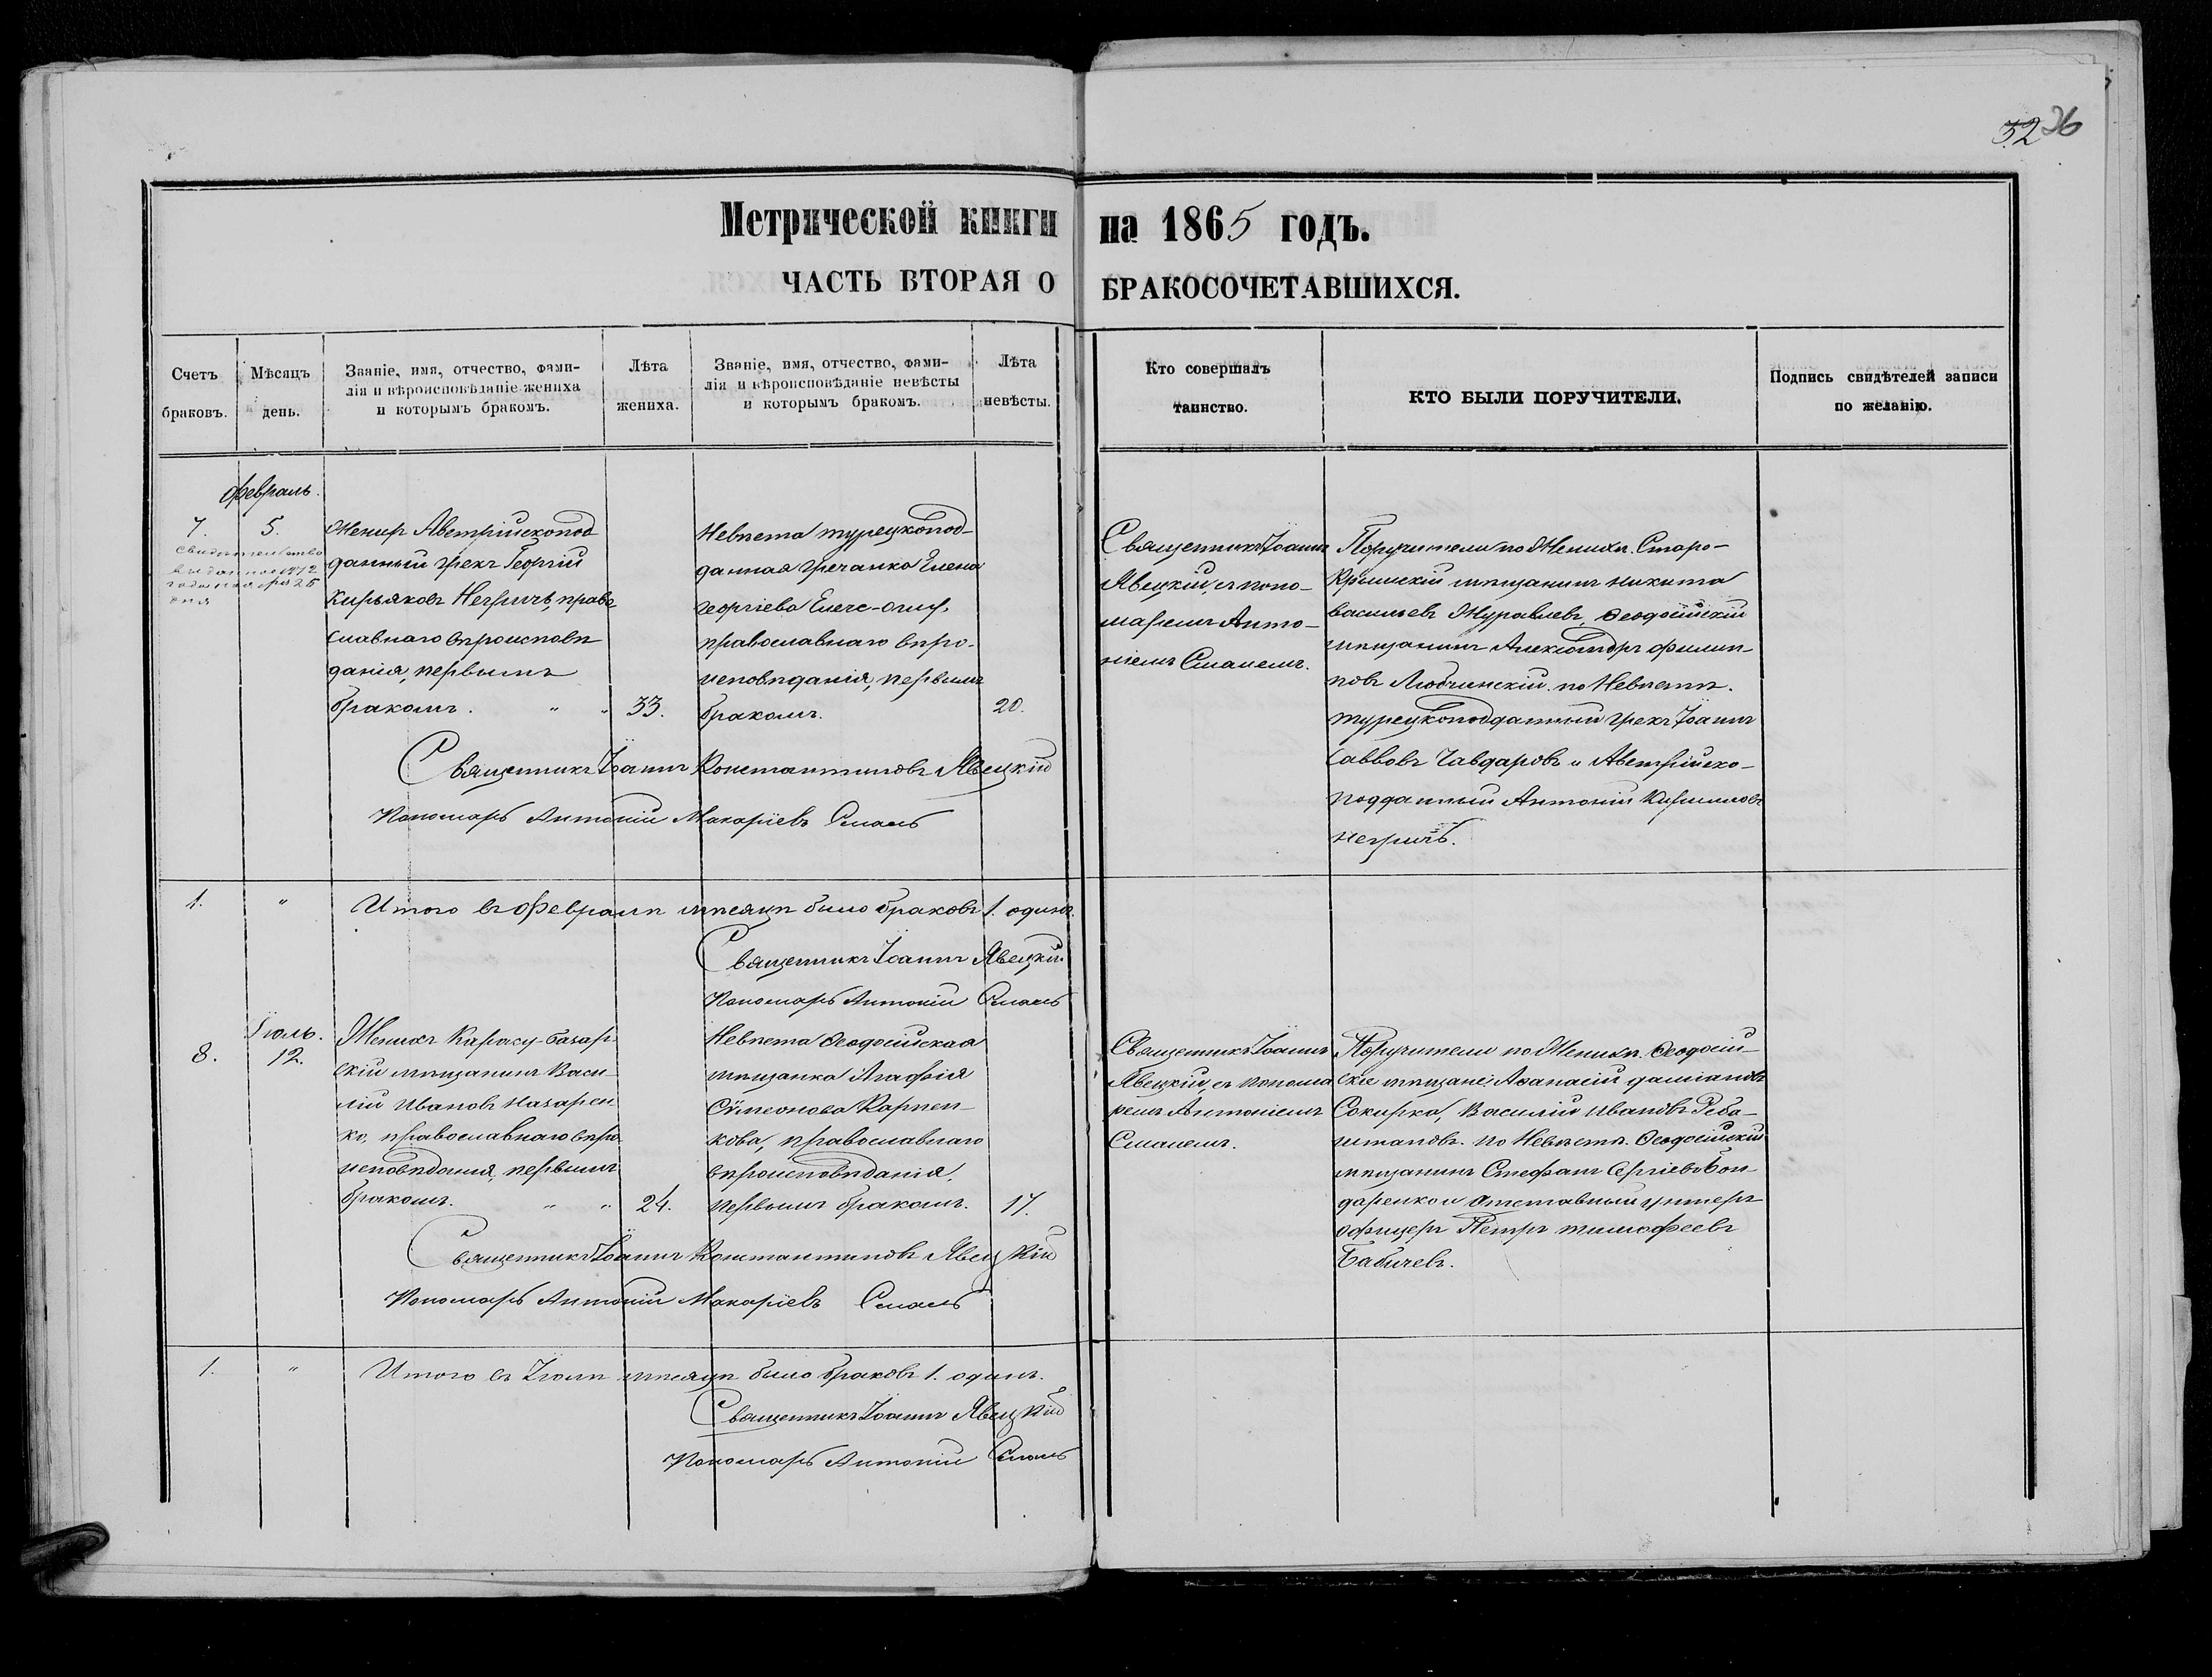 32 26
Метрической книги на 1865 годъ.
ЧАСТЬ ВТОРАЯ О БРАКОСОЧЕТАВШИХСЯ.
Счетъ браковъ.
Мѣсяцъ день.
Званіе, имя, отчество, фами-
лія и вѣроисповѣданіе жениха
и которымъ бракомъ.
Лѣта жениха.
Званіе, имя, отчество, фами-
лія и вѣроисповѣданіе невѣсты
и которымъ бракомъ.
Лѣта невѣсты.
Кто совершалъ
таинство.
КТО БЫЛИ ПОРУЧИТЕЛИ.
Подпись свидѣтелей записи
по желанію.
Февраль.
7. 5.
свидѣтельство
выданное 1872
года 25
дня
Женихъ Австрійскопод
данный грекъ Георгій
Кирьяковъ Негричъ, право
славнаго вѣроисповѣ
данія, первымъ
бракомъ. " " 33.
Невѣста турецкопод-
данная гречанка Елена
георгіева
православнаго вѣро-
исповѣданія, первымъ
бракомъ. 20.
Священникъ Іоаннъ
Явецкій, съ поно-
маремъ Анто-
ніемъ Смалемъ.
Поручители по Женихѣ. Старо-
Крымскій мѣщанинъ никита
васильевъ Журавлевъ, Ѳеодосійскій
мѣщанинъ Александръ филип-
повъ Любчинскій. по Невѣстѣ.
турецкоподданный грекъ Іоаннъ
Саввовъ Чавдаровъ и Австрійско-
подданный Антоній Кирилловъ
негричъ.
Священникъ Іоаннъ Константиновъ Явецкій
Пономарь Антоній Макаріевъ Смаль
1. " Итого въ Февралѣ мѣсяцѣ было браковъ 1. одинъ.
Священникъ Іоаннъ Явецкій.
Пономарь Антоній Смаль
Іюль.
8. 12.
Женихъ Карасу-базар
скій мѣщанинъ Васи-
лій Ивановъ Назарен
ко, православнаго вѣро
исповѣданія, первымъ
бракомъ. " " 24.
Невѣста Ѳеодосійская
мѣщанка Агафія
Сѵмеонова Карпен-
кова, православнаго
вѣроисповѣданія,
первымъ бракомъ. 17.
Священникъ Іоаннъ
Явецкій, съ понома
ремъ Антоніемъ
Смалемъ.
Поручители по Женихѣ. Ѳеодосій-
скіе мѣщане: Аѳанасій даміановъ
Сокирка, Василій ивановъ
по Невѣстѣ. Ѳеодосійскій
мѣщанинъ Стефанъ Сергіевъ Бон-
даренко и отставный унтеръ
офицеръ Петръ тимофеевъ
Бабичевъ.
Священникъ Іоаннъ Константиновъ Явецкій
Пономарь Антоній Макаріевъ Смаль
1. " Итого въ Іюлѣ мѣсяцѣ было браковъ 1. одинъ.
Священникъ Іоаннъ Явецкій
Пономарь Антоній Смаль